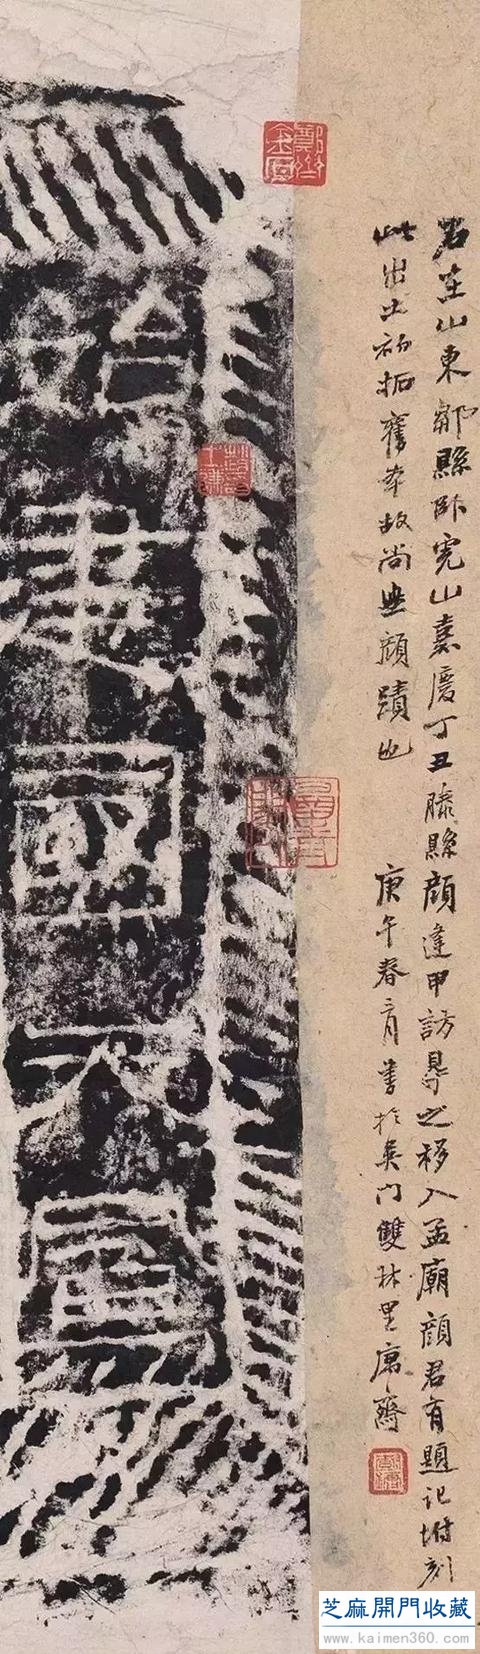 石在山東鄒縣卧虎山嘉慶丁丑滕縣顔逢甲訪得之移入孟廟顔君有題記坿刻
此出土初拓舊本故尚無顔蹟也
庚午春二月書於吳門雙林里寓齋
始建國天
芝麻開門收藏
www.kaimen360.com